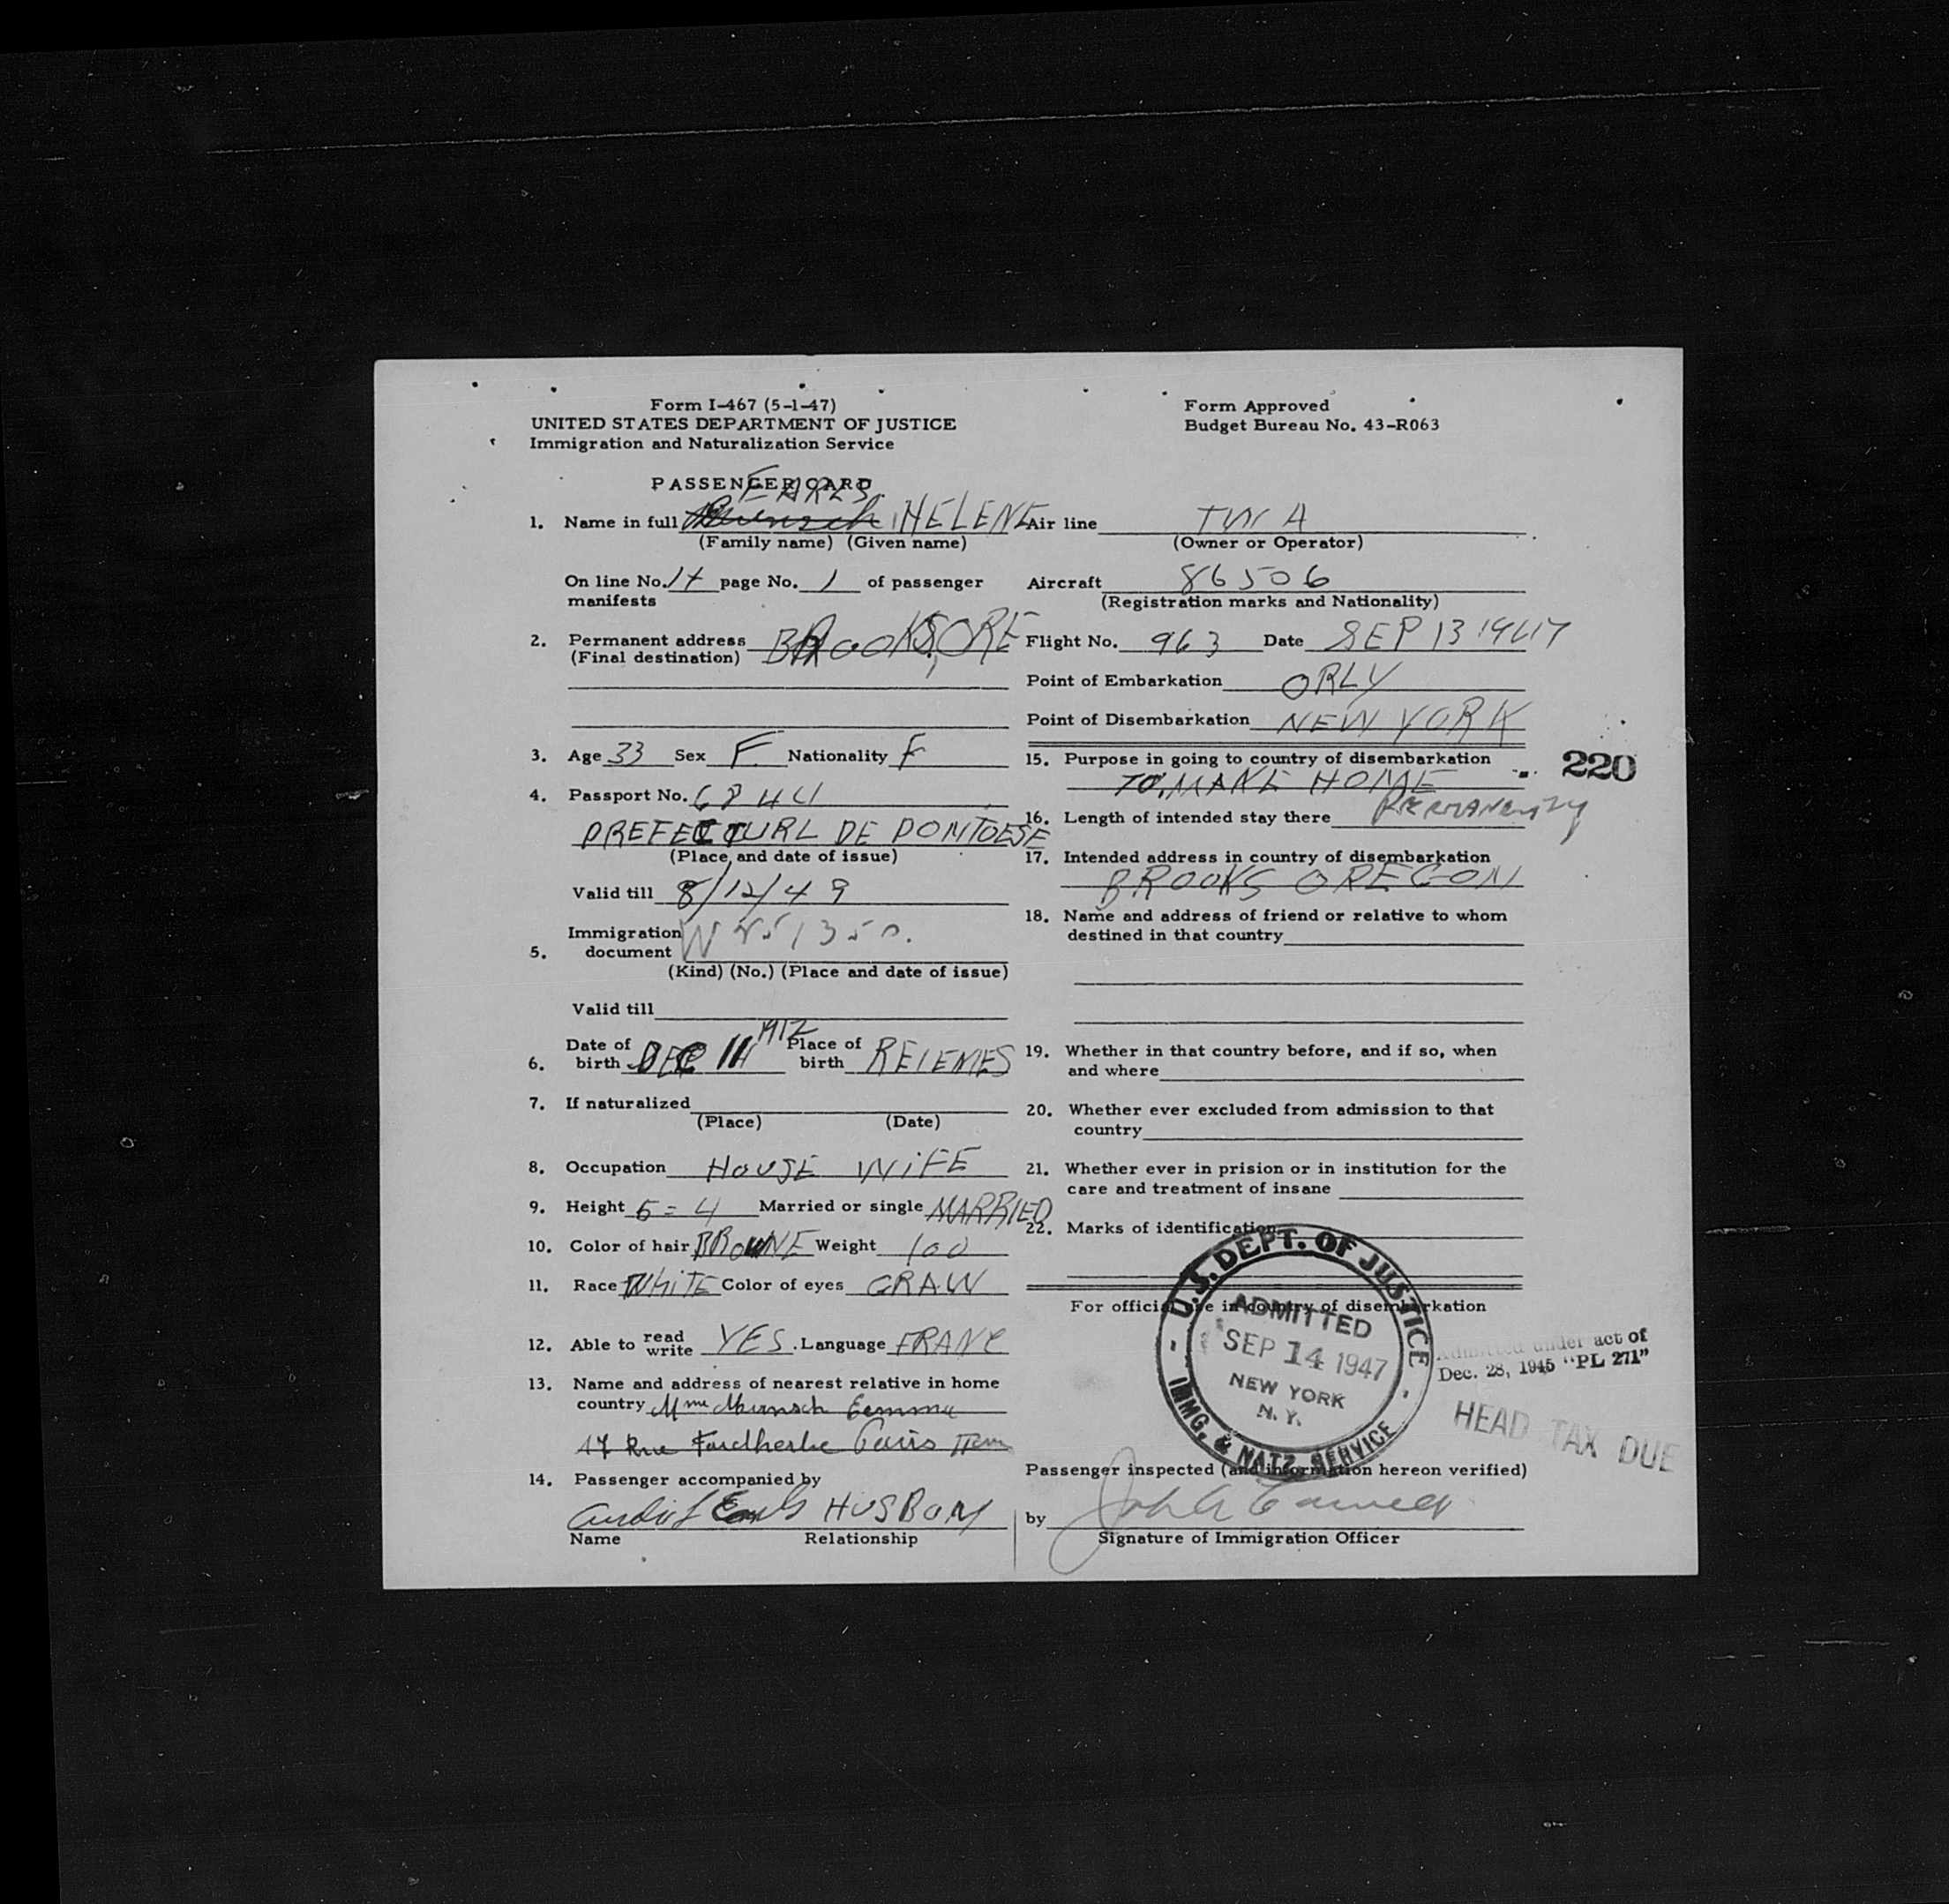 Form I-467 (5-1-47)
UNITED STATES DEPARTMENT OF JUSTICE
Immigration and Naturalization Service
Form Approved
Budget Bureau No. 43-R063
PASSENGER CARD
EARLS
1. Name in full HELENE
(Family name) (Given name)
On line No. page No. 1 of passenger
manifests
2. Permanent address BROOKS, ORE
(Final destination)
3. Age 33 Sex F. Nationality F
4. Passport No.
PREFECTURL DE PONTOESE
(Place and date of issue)
Valid till 8/12/49
5. Immigration document
(Kind) (No.) (Place and date of issue)
Valid till
6. Date of birth DEC 1912 Place of birth REIEMES
7. If naturalized
(Place) (Date)
8. Occupation HOUSE WiFE
9. Height 5=4 Married or single MARRIED
10. Color of hair BROWNE Weight 100
11. Race WHiTE Color of eyes GRAW
12. Able to read write YES. Language FRANC
13. Name and address of nearest relative in home
country Mme Munsch Gemma
17 Rue Faidherbe Paris
14. Passenger accompanied by
Earls HUSBAN
Name Relationship
Air line TWA
(Owner or Operator)
Aircraft 86506
(Registration marks and Nationality)
Flight No. 963 Date SEP 13 1947
Point of Embarkation ORLY
Point of Disembarkation NEW YORK
15. Purpose in going to country of disembarkation
TO MAKE HOME
220
16. Length of intended stay there PERMANENTLY
17. Intended address in country of disembarkation
BROOKS OREGON
18. Name and address of friend or relative to whom
destined in that country
19. Whether in that country before, and if so, when
and where
20. Whether ever excluded from admission to that
country
21. Whether ever in prision or in institution for the
care and treatment of insane
22. Marks of identification
For official use in country of disembarkation
U.S. DEPT. OF JUSTICE
ADMITTED
SEP 14 1947
NEW YORK
N. Y.
IMMG. & NATZ. SERVICE
Admitted under act of
Dec. 28, 1945 "PL 271"
HEAD TAX DUE
Passenger inspected (and information hereon verified)
by
Signature of Immigration Officer